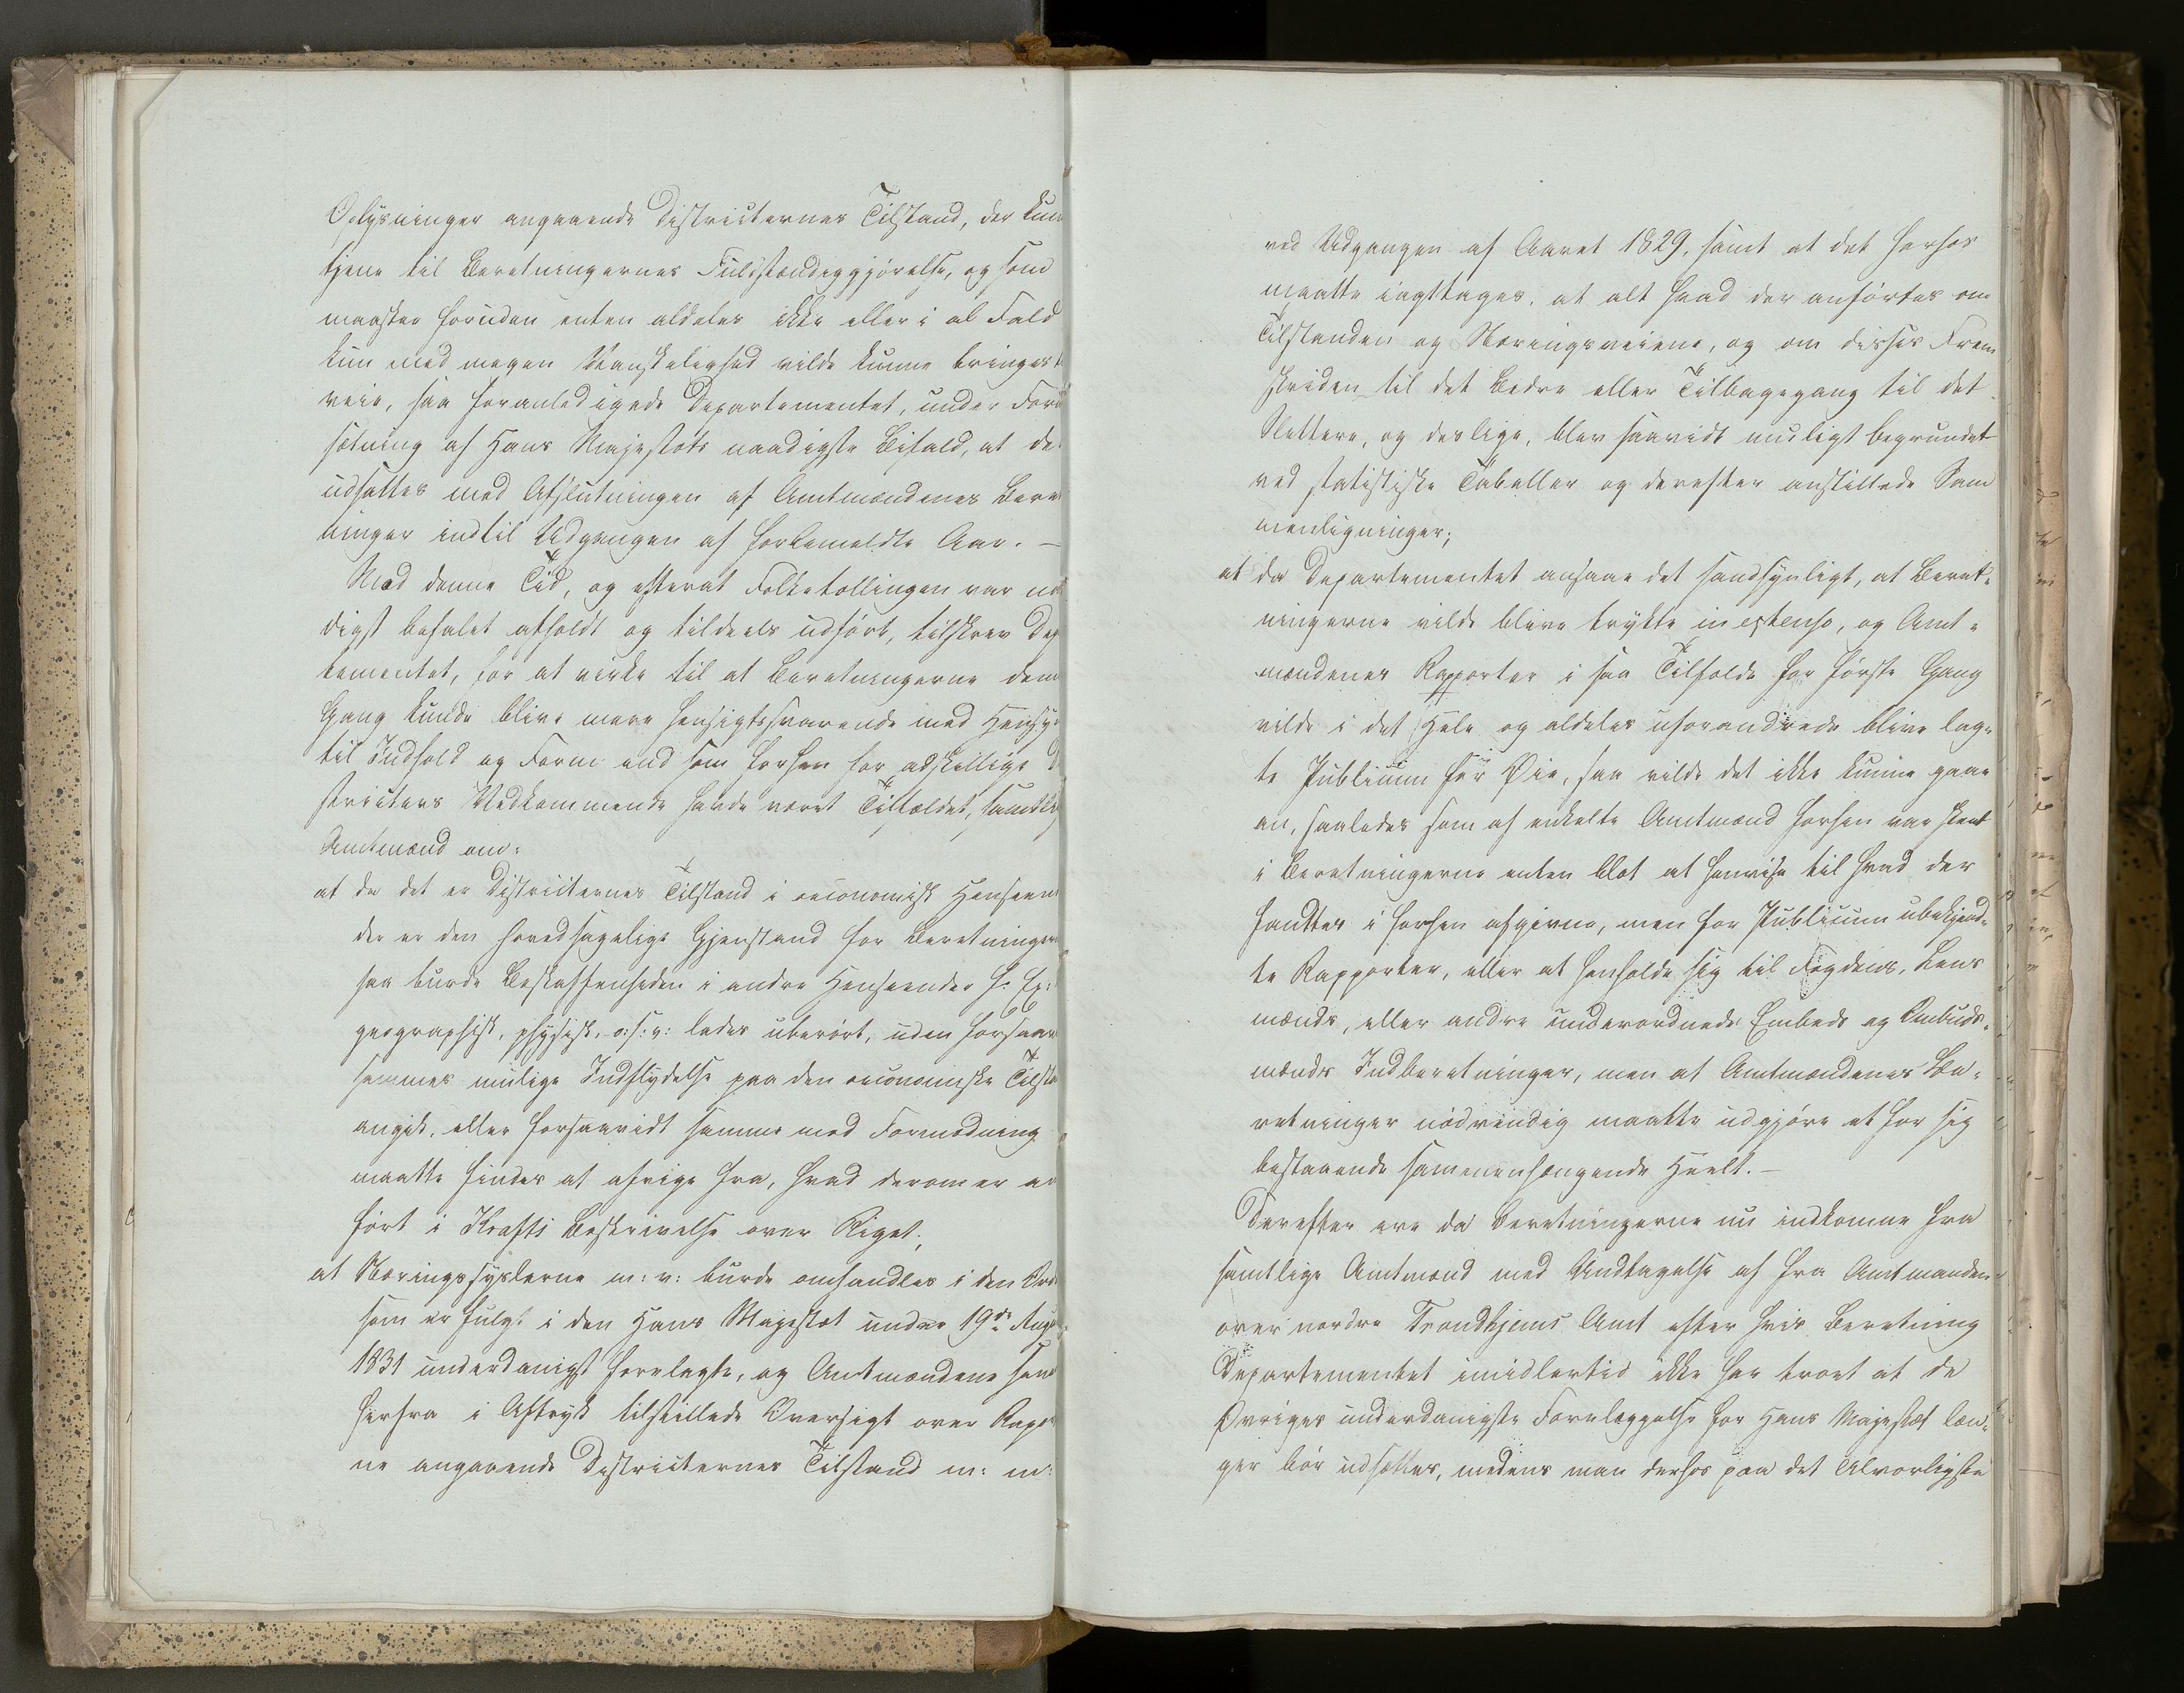 Oplysninger angaaende Districternes Tilstand, der kun
tjene til Beretningernes Fuldstændiggjørelse, og som
maaskee foruden enten aldeles ikke eller i al Fald
kun med megen Vanskelighed vilde kunne bringes
veie, saa foranledigede Departementet, under Foru
sætning af Hans Majestæts naadigste Bifald, at de
udsattes med Afslutningen af Amtmændenes Bere
ninger indtil Udgangen af forbemeldte Aar. —
Mod denne Tid, og efterat Folketællingen var na
digst befalet afholdt og tildeels udført, tilskrev Dep
tementet, for at virke til at Beretningerne den
Gang kunde blive mere hensigtssvarende med Hensy
til Indhold og Form end som forhen for adskillige D
stricters Vedkommende havde været Tilfældet, samtlig
Amtmænd om:
at da det er Districternes Tilstand i oeconomisk Henseen
der er den hovedsagelige Gjenstand for Beretningern
saa burde Beskaffenheden i andre Henseender f. Ex:
geographisk, physisk, o: s: v: lades uberørt, uden forsaav
sammes mulige Indflydelse paa den oeconomiske Tilsta
angik, eller forsaavidt samme mod Formodning
maatte findes at afvige fra, hvad derom er an
ført i Krafts Beskrivelse over Riget;
at Næringssyslerne m: v: burde omhandles i den Ord
som er fulgt i den Hans Majestæt under 19de Augu
1831 underdanigst forelagte, og Amtmændene sene
herfra i Aftryk tilstillede Oversigt over Rapo
ne angaaende Districternes Tilstand m: m:
ved Udgangen af Aaret 1829, samt at det herhos
maatte iagttages, at alt hvad der anførtes om
Tilstanden og Næringsveiene, og om disses Frem
skriden til det Bedre eller Tilbagegang til det
Slettere, og deslige, blev saavidt muligt begrundet
ved statistiske Tabeller og derefter anstillede Sam
menligninger;
at da Departementet ansaae det sandsynligt, at Beret-
ningerne vilde blive trykte in extenso, og Amt-
mændenes Rapporter i saa Tilfælde for første Gang
vilde i det Hele og aldeles uforandrede blive lag-
te Publicum for Øie, saa vilde det ikke kunne gaae
an, saaledes som af enkelte Amtmænd forhen var skeet
i Beretningerne enten blot at henvise til hvad der
fandtes i forhen afgivne, men for Publicum ubekjend-
te Rapporter, eller at henholde sig til Fogdens, Lens
mænds, eller andre underordnede Embeds og Ombuds-
mænds Indberetninger, men at Amtmændenes Be-
retninger nødvendig maatte udgjøre et for sig
bestaaende sammenhængende Heelt. —
Derefter ere da Beretningerne nu indkomne fra
samtlige Amtmænd med Undtagelse af fra Amtmanden
over nordre Trondhjems Amt efter hvis Beretning
Departementet imidlertid ikke har troet at de
Øvriges underdanigste Forelæggelse for Hans Majestæt læn-
ger bør udsættes, medens man derhos paa det Alvorligste